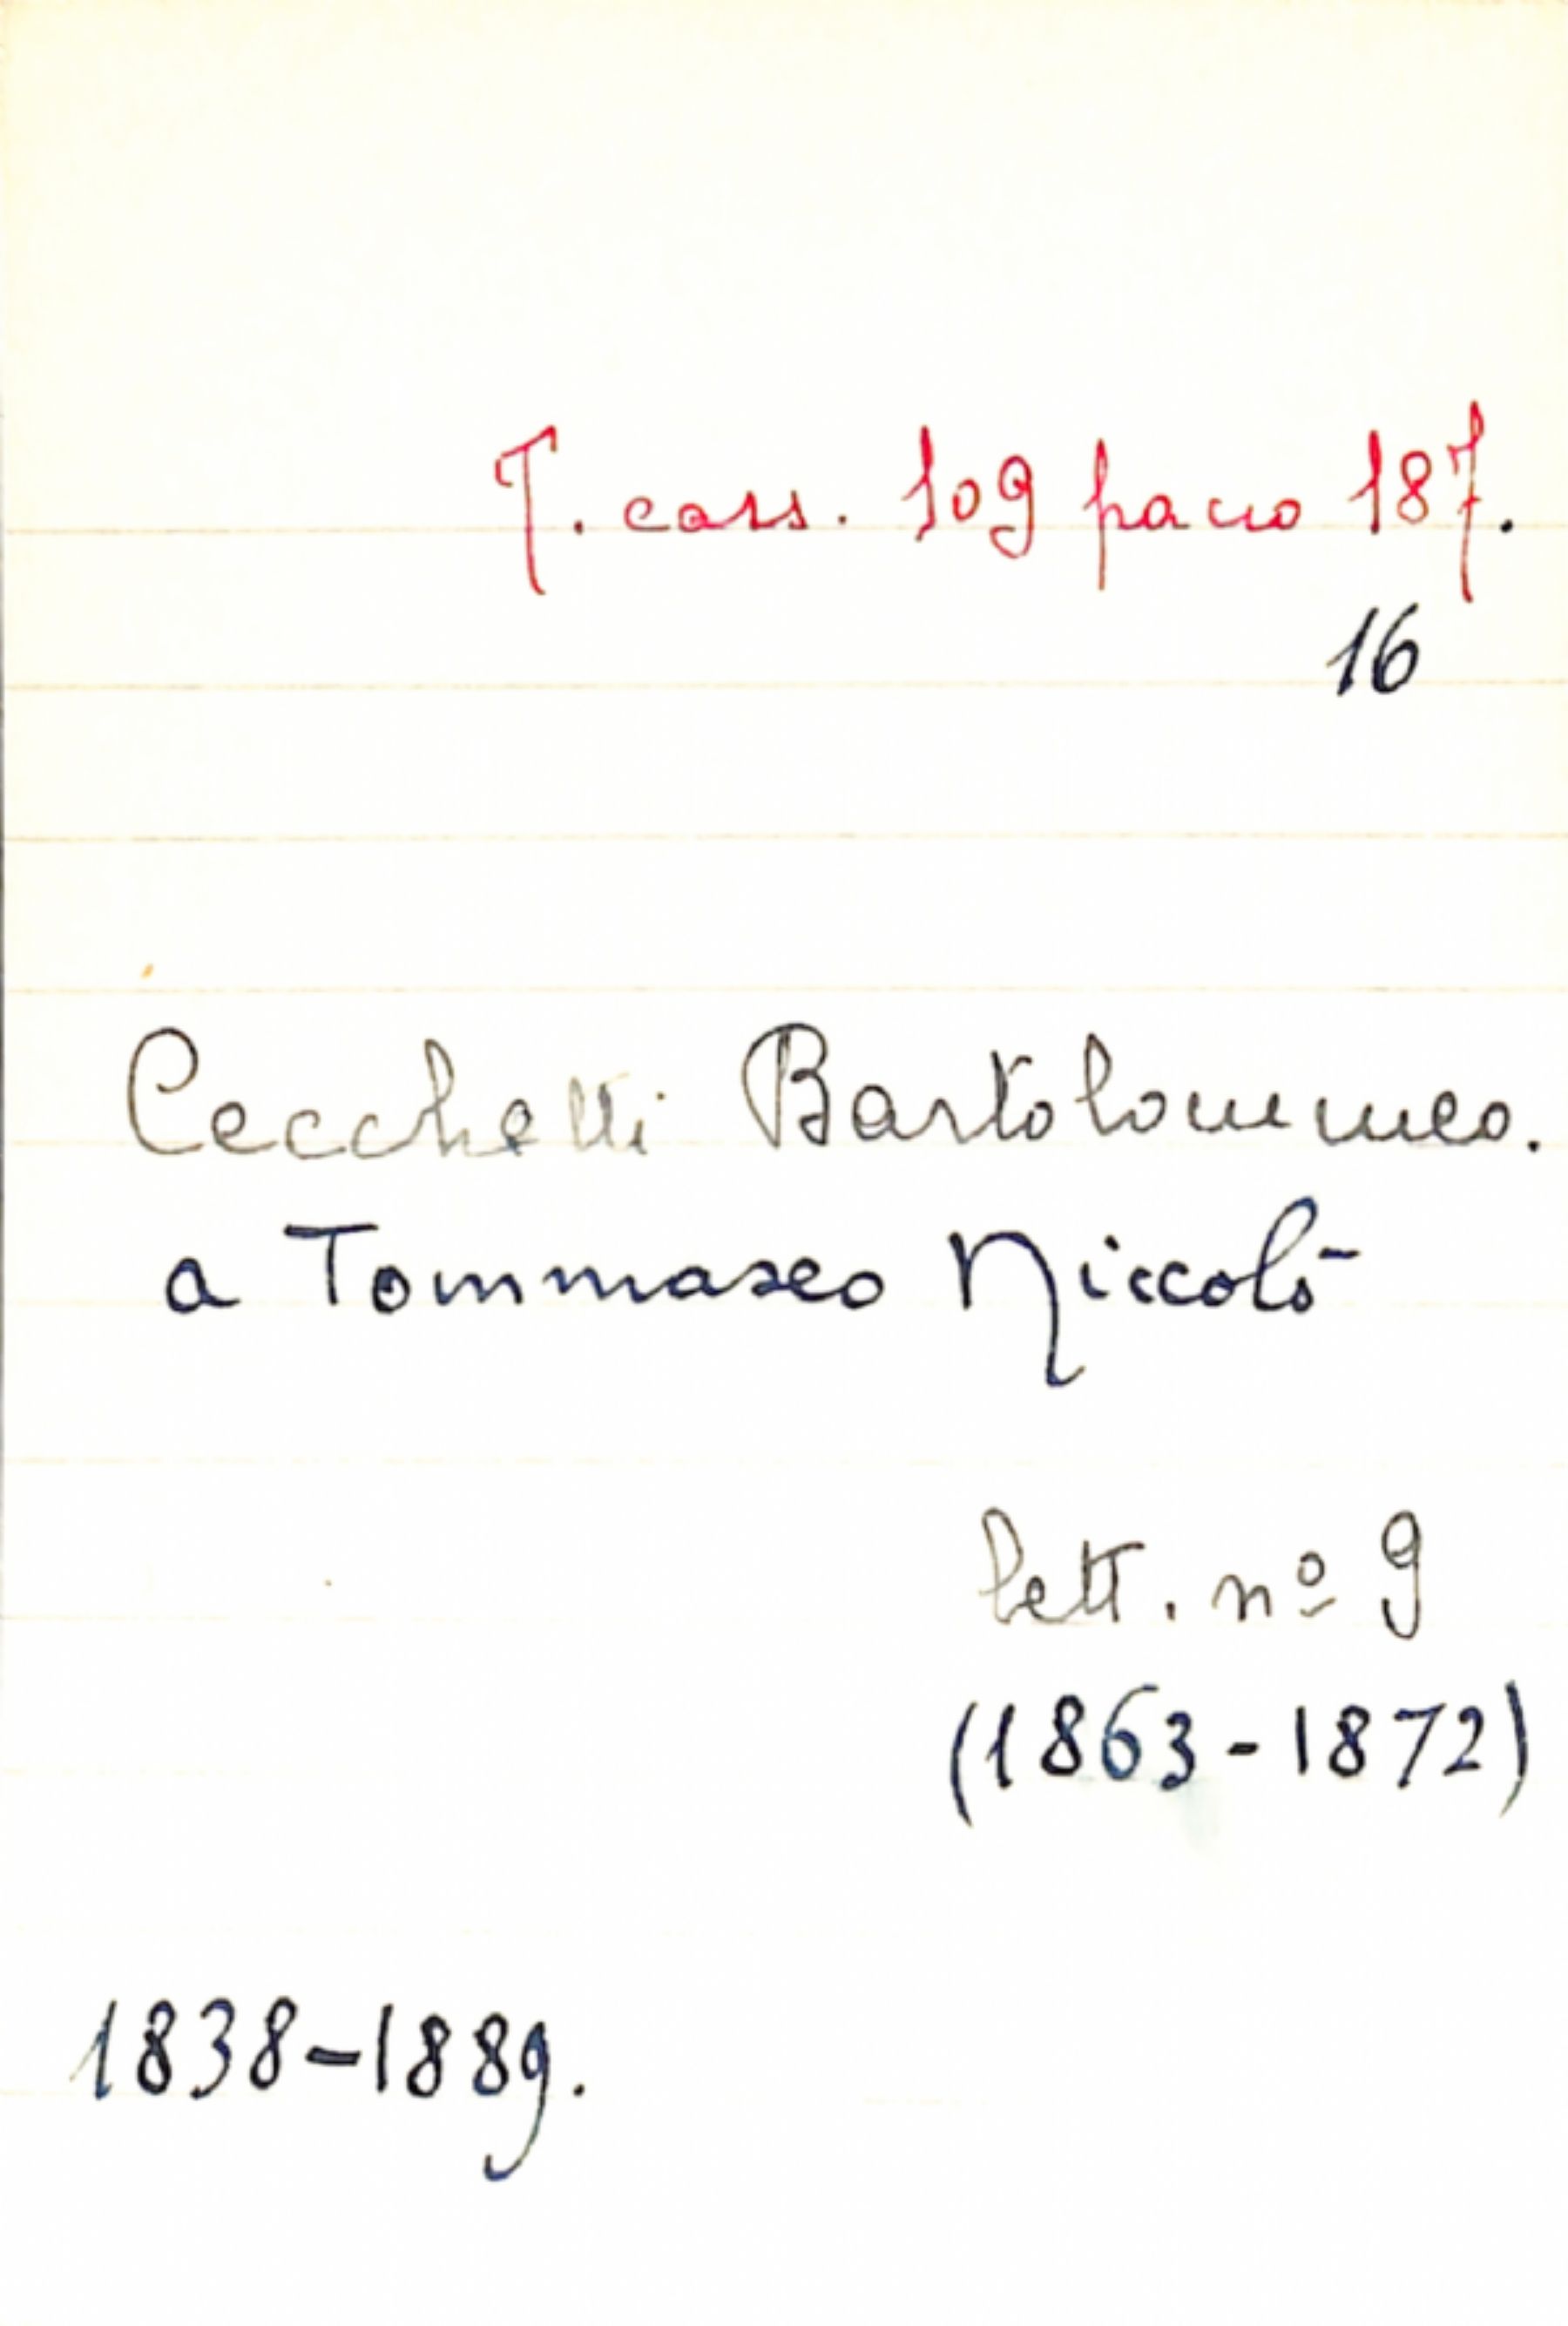 T. cass. 109 pacco 187.
16
Cecchetti Bartolommeo.
a Tommaseo Niccolò
lett. nº 9
(1863-1872)
1838-1889.